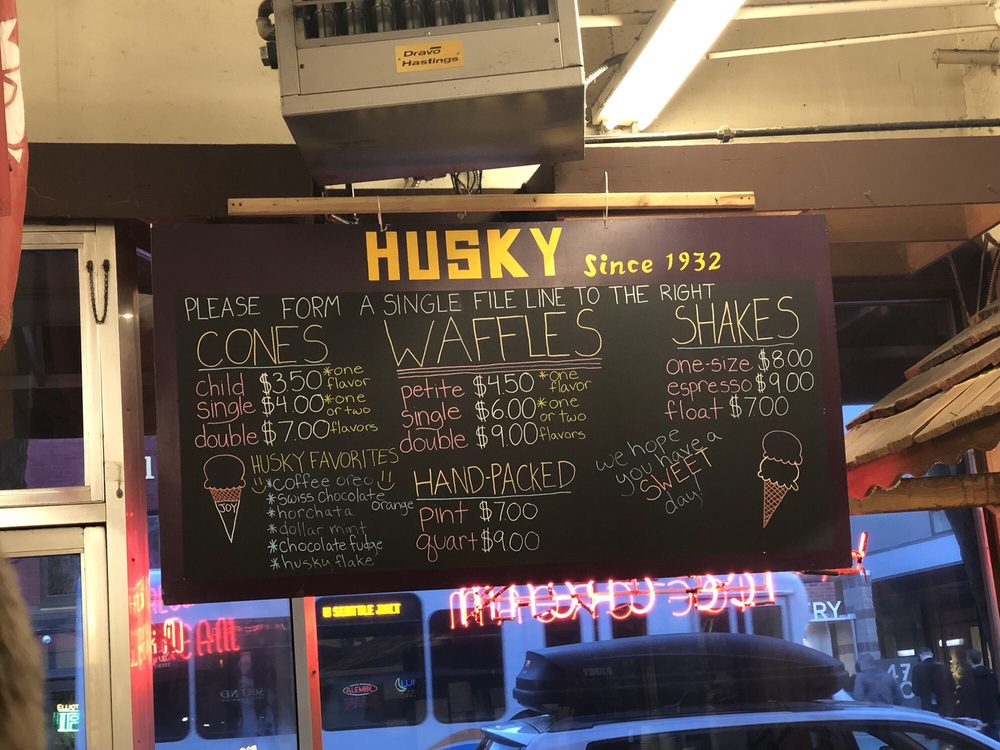 Dravo
Hastings
HUSKY Since 1932
PLEASE FORM A SINGLE FILE LINE TO THE RIGHT
CONES
child $3.50 *one flavor
single $4.00 *one or two flavors
double $7.00
WAFFLES
petite $4.50 *one flavor
single $6.00 *one or two flavors
double $9.00
SHAKES
one-size $8.00
espresso $9.00
float $7.00
HUSKY FAVORITES
*coffee oreo
*swiss chocolate orange
*horchata
*dollar mint
*chocolate fudge
*husky flake
JOY
HAND-PACKED
pint $7.00
quart $9.00
we hope
you have a
SWEET
day!
W SEATTLE JUNCT
ALEMBIC
THULE
RY
47